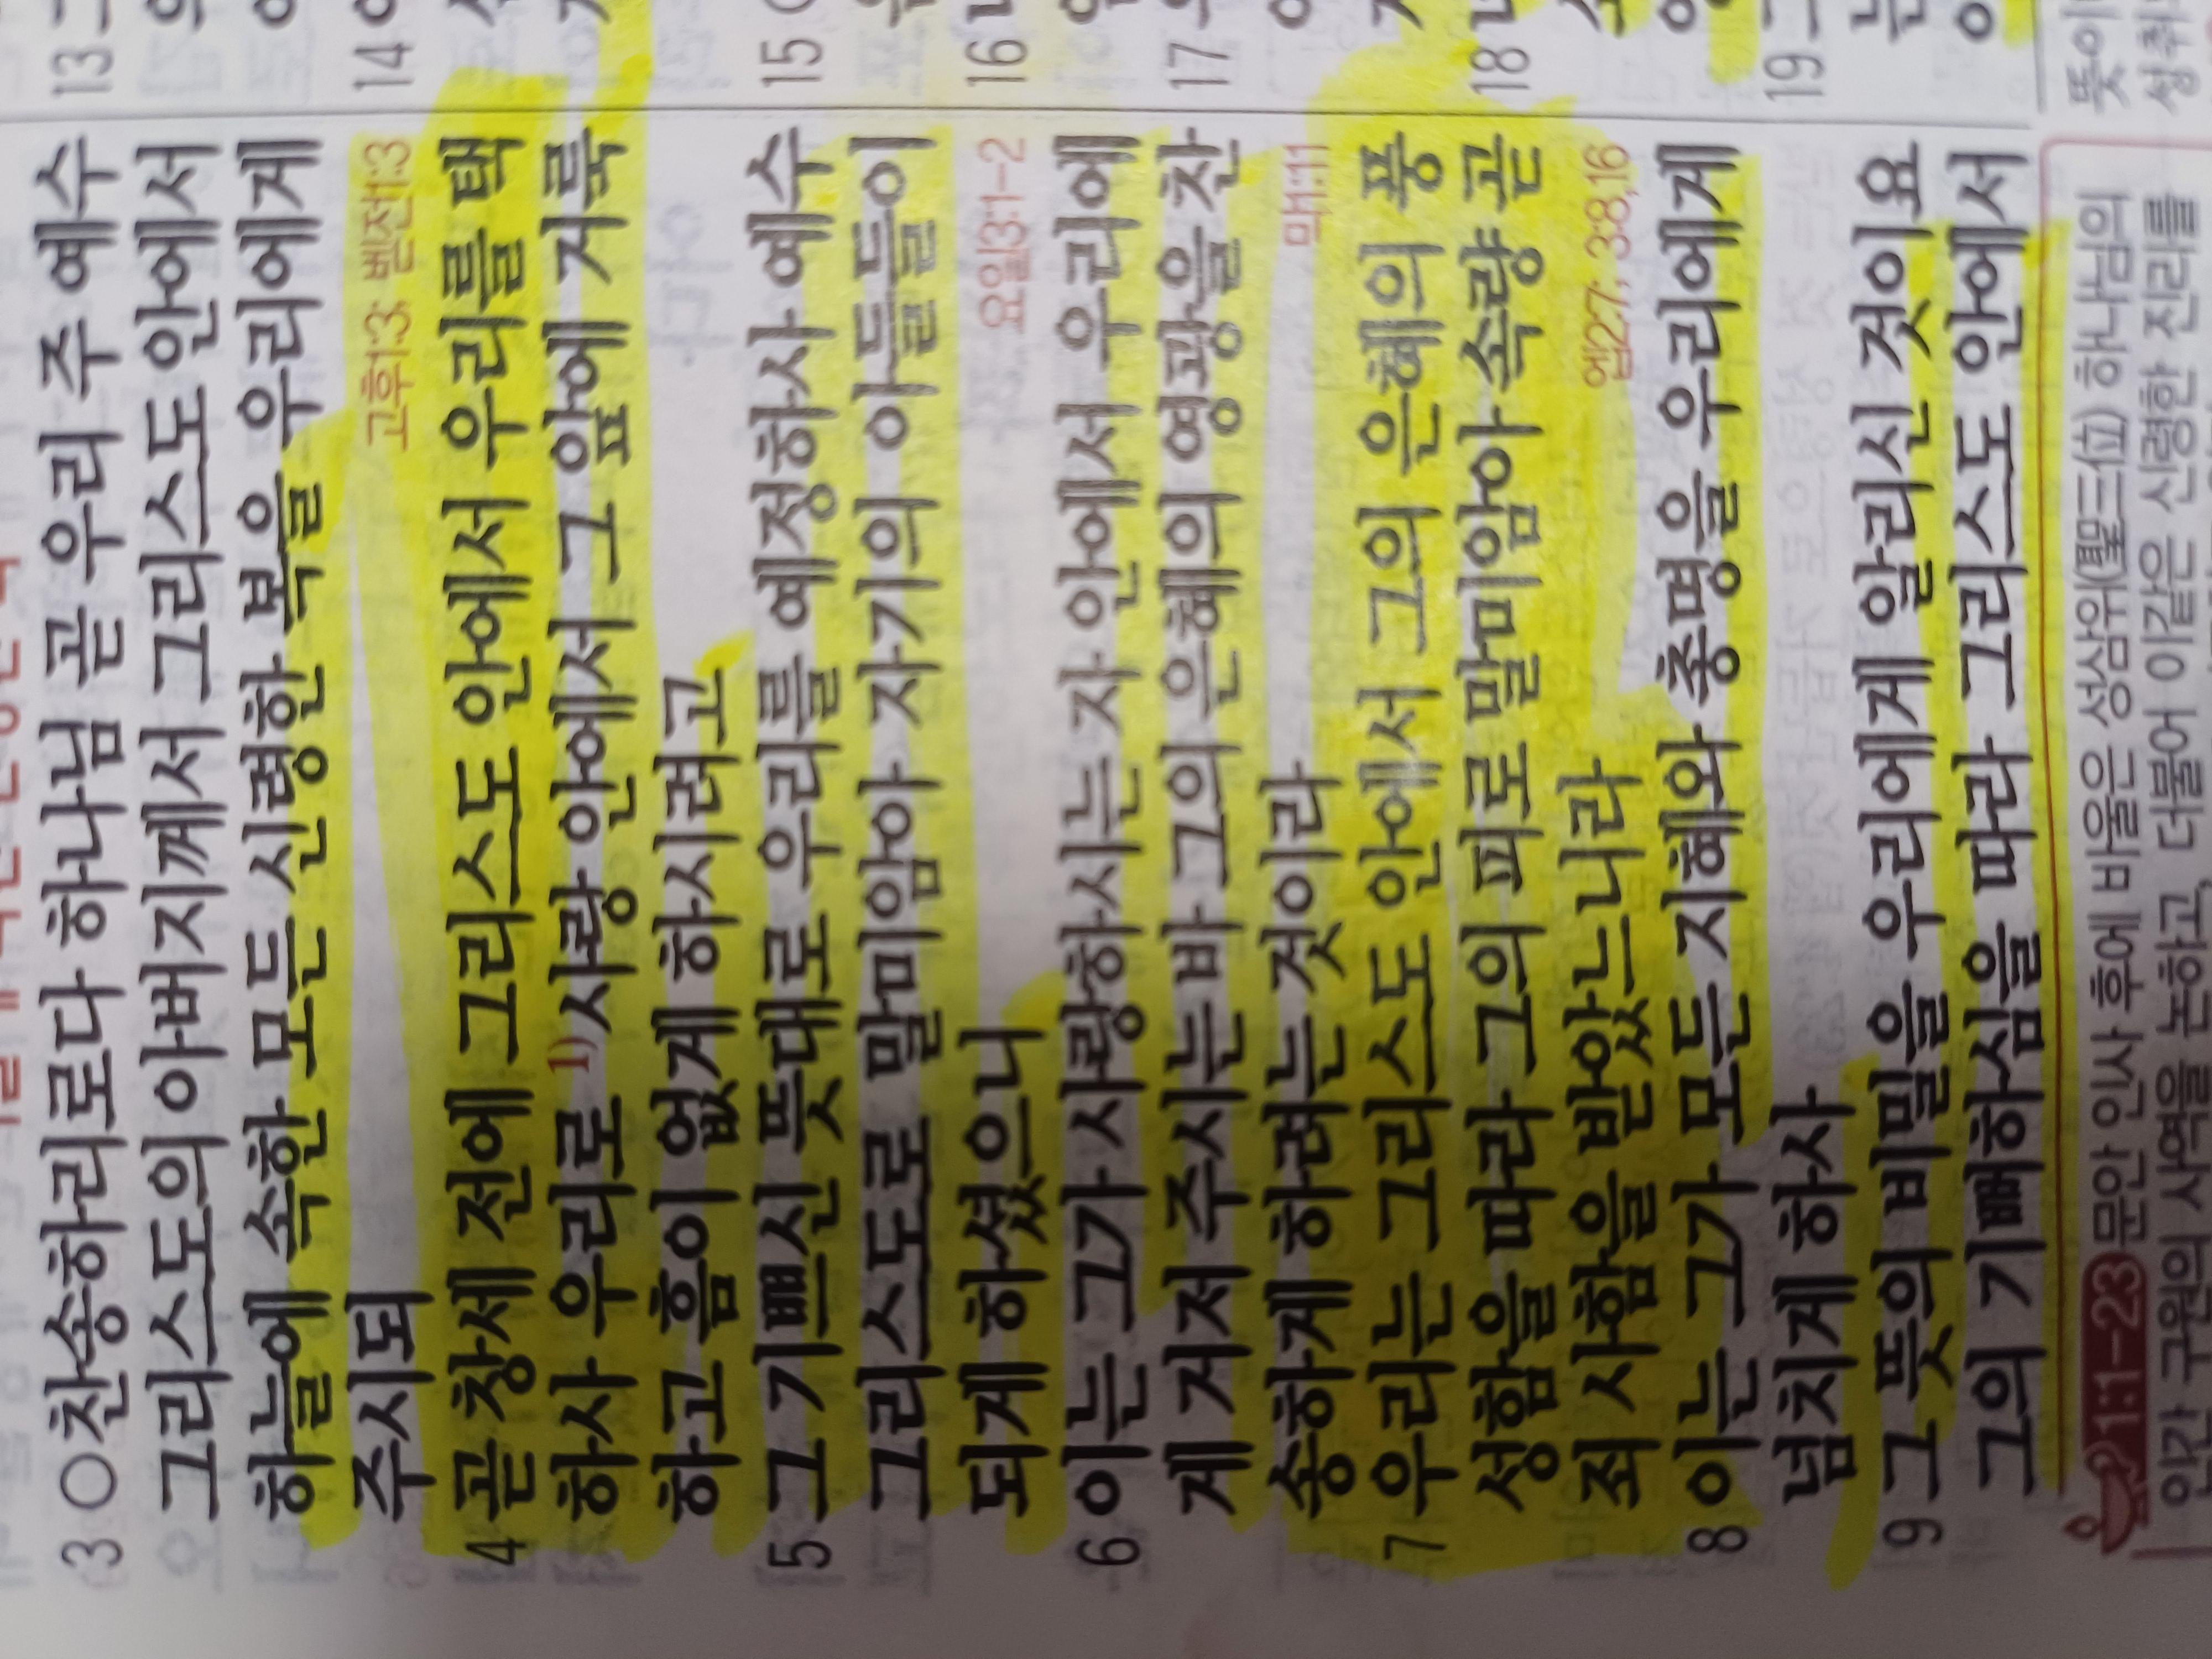 3 ○찬송하리로다 하나님 곧 우리 주 예수
그리스도의 아버지께서 그리스도 안에서
하늘에 속한 모든 신령한 복을 우리에게
주시되
고후1:3; 벧전1:3
4 곧 창세 전에 그리스도 안에서 우리를 택
하사 우리로 1)사랑 안에서 그 앞에 거룩
하고 흠이 없게 하시려고
5 그 기쁘신 뜻대로 우리를 예정하사 예수
그리스도로 말미암아 자기의 아들들이
되게 하셨으니
요일3:1-2
6 이는 그가 사랑하시는 자 안에서 우리에
게 거저 주시는 바 그의 은혜의 영광을 찬
송하게 하려는 것이라
막1:11
7 우리는 그리스도 안에서 그의 은혜의 풍
성함을 따라 그의 피로 말미암아 속량 곧
죄 사함을 받았느니라
엡2:7; 3:8,16
8 이는 그가 모든 지혜와 총명을 우리에게
넘치게 하사
9 그 뜻의 비밀을 우리에게 알리신 것이요
그의 기뻐하심을 따라 그리스도 안에서
1:1-23 문안 인사 후에 바울은 성삼위(聖三位) 하나님의
인간 구원의 사역을 논하고, 더불어 이같은 신령한 진리를
13
14
15
16
17
18
19
뜻이
성취